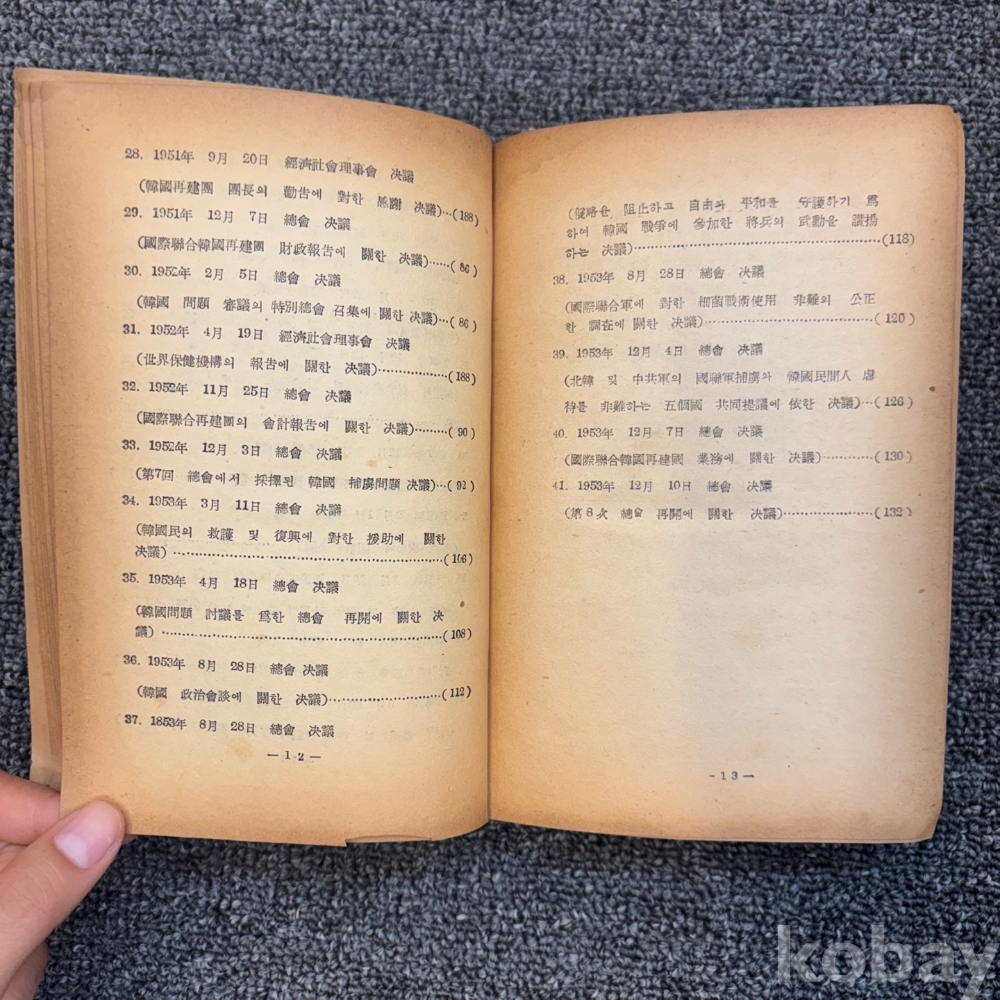 28. 1951年 9月 20日 經濟社會理事會 决議
(韓國再建團 團長의 勸告에 對한 感謝 决議)…(188)
29. 1951年 12月 7日 總會 决議
(國際聯合韓國再建團 財政報告에 關한 决議)……(86)
30. 1952年 2月 5日 總會 决議
(韓國 問題 審議의 特別總會 召集에 關한 决議)…(86)
31. 1952年 4月 19日 經濟社會理事會 决議
(世界保健機構의 報告에 關한 决議)………………(188)
32. 1952年 11月 25日 總會 决議
(國際聯合再建團의 會計報告에 關한 决議)………(90)
33. 1952年 12月 3日 總會 决議
(第7回 總會에서 採擇된 韓國 捕虜問題 决議)…(92)
34. 1953年 3月 11日 總會 决議
(韓國民의 救護 및 復興에 對한 援助에 關한
决議)……………………………………………(106)
35. 1953年 4月 18日 總會 决議
(韓國問題 討議를 爲한 總會 再開에 關한 决
議)………………………………………………(108)
36. 1953年 8月 28日 總會 决議
(韓國 政治會談에 關한 决議)……………………(112)
37. 1853年 8月 28日 總會 决議
—12—
(侵略을 阻止하고 自由와 平和를 守護하기 爲
하여 韓國 戰爭에 參加한 將兵의 武勳을 讚揚
하는 决議)………………………………………(118)
38. 1953年 8月 28日 總會 决議
(國際聯合軍에 對한 細菌戰術使用 非難의 公正
한 調査에 關한 决議)……………………………(120)
39. 1953年 12月 4日 總會 决議
(北韓 및 中共軍의 國聯軍捕虜와 韓國民間人 虐
待를 非難하는 五個國 共同提議에 依한 决議)…(126)
40. 1953年 12月 7日 總會 决議
(國際聯合韓國再建國 業務에 關한 决議)…………(130)
41. 1953年 12月 10日 總會 决議
(第8次 總會 再開에 關한 决議)…………………(132)
-13—
kobay